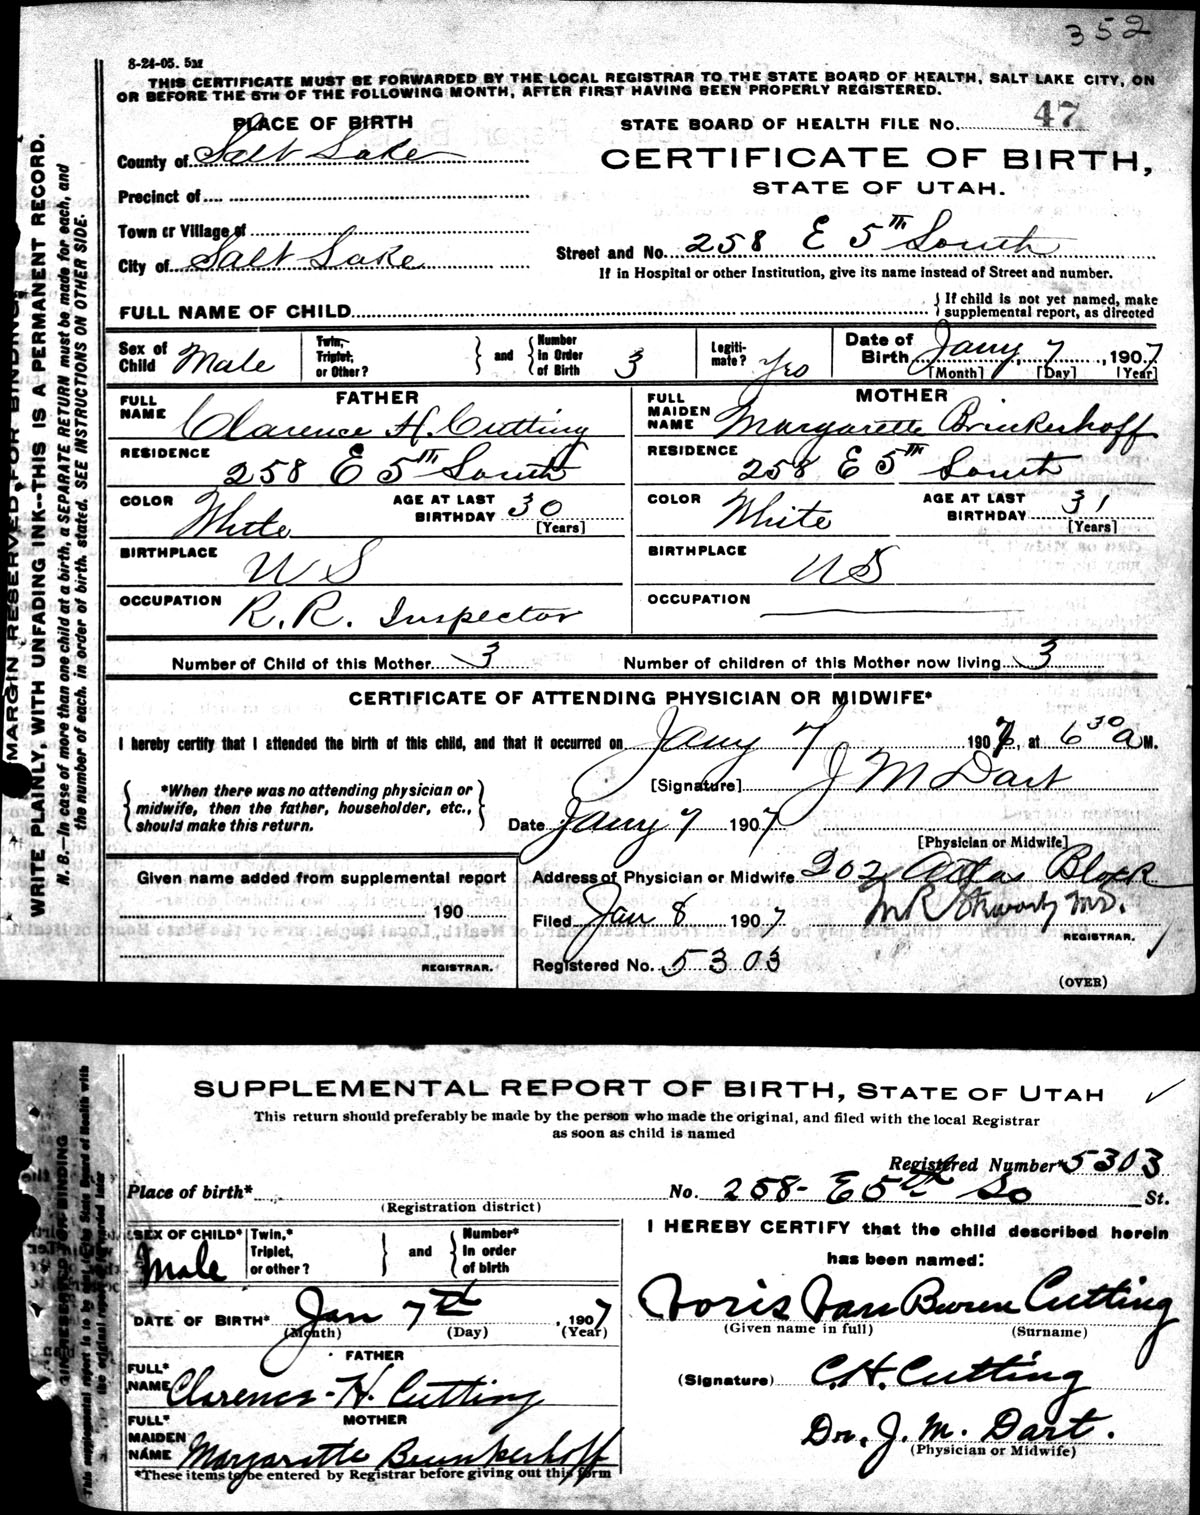 352
8-24-05. 5M
THIS CERTIFICATE MUST BE FORWARDED BY THE LOCAL REGISTRAR TO THE STATE BOARD OF HEALTH, SALT LAKE CITY, ON
OR BEFORE THE 5TH OF THE FOLLOWING MONTH, AFTER FIRST HAVING BEEN PROPERLY REGISTERED.
MARGIN RESERVED FOR BINDING.
WRITE PLAINLY, WITH UNFADING INK--THIS IS A PERMANENT RECORD.
N. B.—In case of more than one child at a birth, a SEPARATE RETURN must be made for each, and
the number of each, in order of birth, stated. SEE INSTRUCTIONS ON OTHER SIDE.
PLACE OF BIRTH
County of Salt Lake
Precinct of
Town or Village of
City of Salt Lake
STATE BOARD OF HEALTH FILE No. 47
CERTIFICATE OF BIRTH,
STATE OF UTAH.
Street and No. 258 E 5th South
If in Hospital or other Institution, give its name instead of Street and number.
FULL NAME OF CHILD
If child is not yet named, make
supplemental report, as directed
Sex of Child Male
Twin, Triplet, or Other? and Number in Order of Birth 3
Legiti-mate? Yes
Date of Birth Jany 7, 1907
[Month] [Day] [Year]
FATHER
FULL NAME Clarence H. Cutting
RESIDENCE 258 E 5th South
COLOR White AGE AT LAST BIRTHDAY 30 [Years]
BIRTHPLACE U S
OCCUPATION R. R. Inspector
MOTHER
FULL MAIDEN NAME Margarette Brinkerhoff
RESIDENCE 258 E 5th South
COLOR White AGE AT LAST BIRTHDAY 31 [Years]
BIRTHPLACE U S
OCCUPATION
Number of Child of this Mother 3 Number of children of this Mother now living 3
CERTIFICATE OF ATTENDING PHYSICIAN OR MIDWIFE*
I hereby certify that I attended the birth of this child, and that it occurred on Jany 7 1907, at 6 30 a M.
*When there was no attending physician or
midwife, then the father, householder, etc.,
should make this return.
[Signature] J M Dart
Date Jany 7 1907
[Physician or Midwife]
Given name added from supplemental report
190
REGISTRAR.
Address of Physician or Midwife 202 Atlas Block
Filed Jan 8 1907 M.D.
REGISTRAR.
Registered No. 5303
(OVER)
SUPPLEMENTAL REPORT OF BIRTH, STATE OF UTAH
This return should preferably be made by the person who made the original, and filed with the local Registrar
as soon as child is named
Registered Number* 5303
Place of birth* No. 258- E 5th So St.
(Registration district)
SEX OF CHILD* Male
Twin,* Triplet, or other? and Number* In order of birth
DATE OF BIRTH* Jan 7th, 1907
(Month) (Day) (Year)
FATHER
FULL* NAME Clarence H. Cutting
MOTHER
FULL* MAIDEN NAME Margarette Brinkerhoff
*These items to be entered by Registrar before giving out this form
I HEREBY CERTIFY that the child described herein
has been named:
Voris Van Buren Cutting
(Given name in full) (Surname)
(Signature) C. H. Cutting
Dr. J. M. Dart.
(Physician or Midwife)